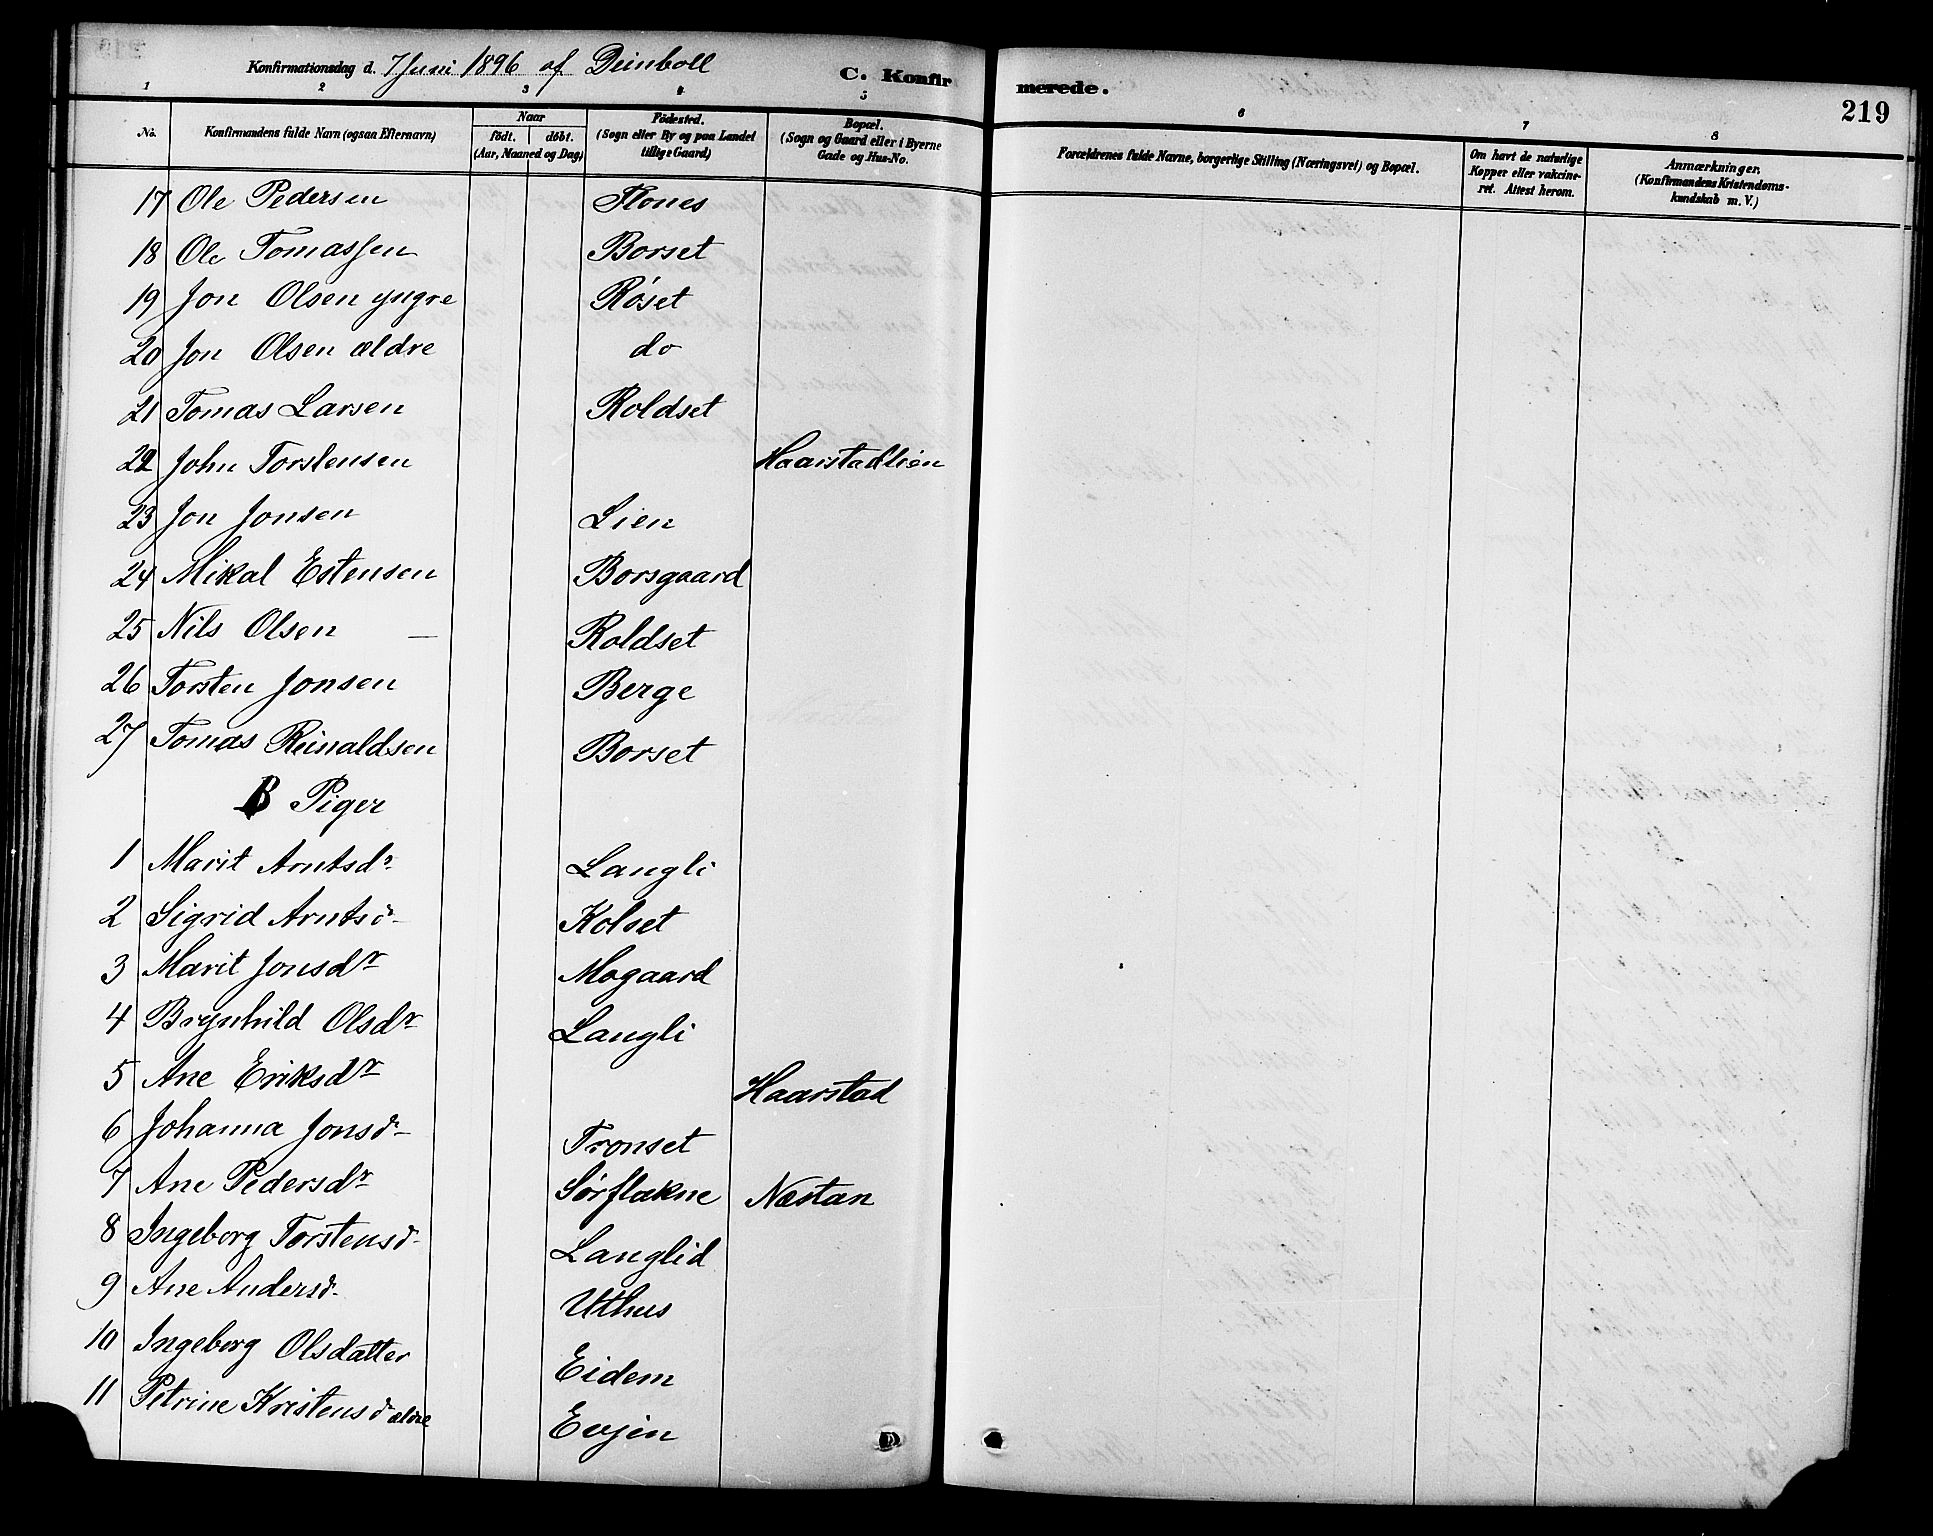 Konfirmationsdag d. 7 Juni 1896 af Deinboll
C. Konfirmerede.
219
1 2 3 4 5 6 7 8
No. Konfirmandens fulde Navn (ogsaa Efternavn) Naar födt. döbt. (Aar, Maaned og Dag) Födested. (Sogn eller By og paa Landet tillige Gaard) Bopæl. (Sogn og Gaard eller i Byerne Gade og Hus-No. Forældrenes fulde Navne, borgerlige Stilling (Næringsvei) og Bopæl. Om havt de naturlige Kopper eller vakcineret. Attest herom. Anmærkninger. (Konfirmandens Kristendomskundskab m. V.)
17 Ole Pedersen Flones
18 Ole Tomassen Borset
19 Jon Olsen yngre Røset
20 Jon Olsen ældre do
21 Tomas Larsen Roldset
22 John Torstensen Haarstadlien
23 Jon Jonsen Lien
24 Mikal Estensen Borsgaard
25 Nils Olsen — Roldset
26 Torsten Jonsen Berge
27 Tomas Reinaldsen Borset
B Piger
1 Marit Arntsdr Langli
2 Sigrid Arntsd- Kolset
3 Marit Jonsdr Mogaard
4 Brynhild Olsdr Langli
5 Ane Eriksdr Haarstad
6 Johanna Jonsd- Tronset
7 Ane Pedersdr Sørflakne Næstan
8 Ingeborg Torstensd- Langlid
9 Ane Andersd- Uthus
10 Ingeborg Olsdatter Eidem
11 Petrine Kristensd ældre Evjen